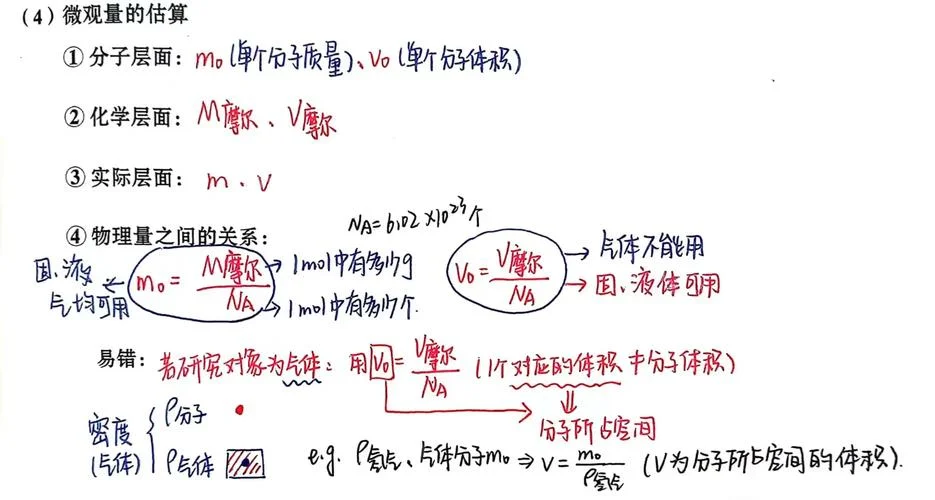 (4) 微观量的估算
① 分子层面: m₀ (单个分子质量)、V₀ (单个分子体积)
② 化学层面: M摩尔、V摩尔
③ 实际层面: m、V
NA=6.02×10²³个
④ 物理量之间的关系:
固、液 气均可用 ← m₀ = M摩尔/NA → 1mol中有多少g → 1mol中有多少个.
V₀ = V摩尔/NA → 气体不能用 → 固、液体可用
易错: 若研究对象为气体: 用V₀ = V摩尔/NA (1个对应的体积中分子体积)
⇓
分子所占空间
密度(气体) { ρ分子
ρ气体
e.g. ρ氢气、气体分子m₀ ⇒ V = m₀/ρ氢气 (V为分子所占空间的体积).